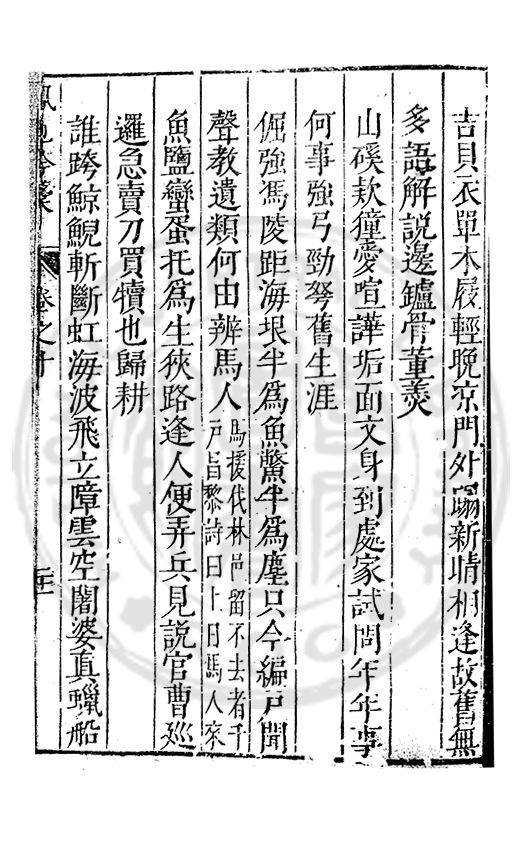 吉貝衣單木屐輕晚凉門外踢新晴相逢故舊無
多語解說邊鑪骨董羮
山磎欵獞愛喧譁垢面文身到處家試問年年事
何事強弓勁弩舊生涯
倔強馮陵距海垠半爲魚鱉半爲塵只今編戸聞
聲教遺類何由辨馬人馬援伐林邑留不去者千
戸昌黎詩曰上日馬人來
魚鹽蠻蛋托爲生狹路逢人便弄兵見説官曹廵
邏急賣刀買犢也歸耕
誰跨鯨鯢斬斷虹海波飛立障雲空闍婆真蠟船
卷之十